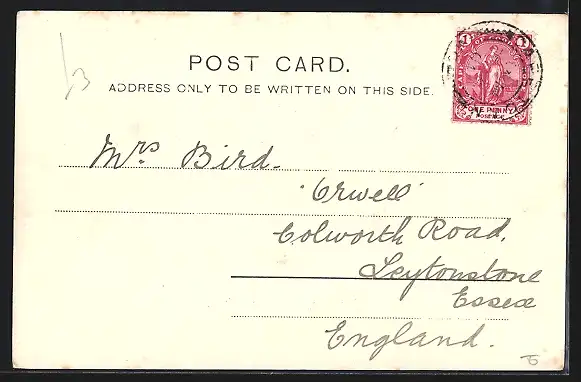 POST CARD.
ADDRESS ONLY TO BE WRITTEN ON THIS SIDE.
1
ONE PENNY
POSTAGE
Mrs Bird.
'Orwell'
Colworth Road.
Leytonstone
Essex
England.